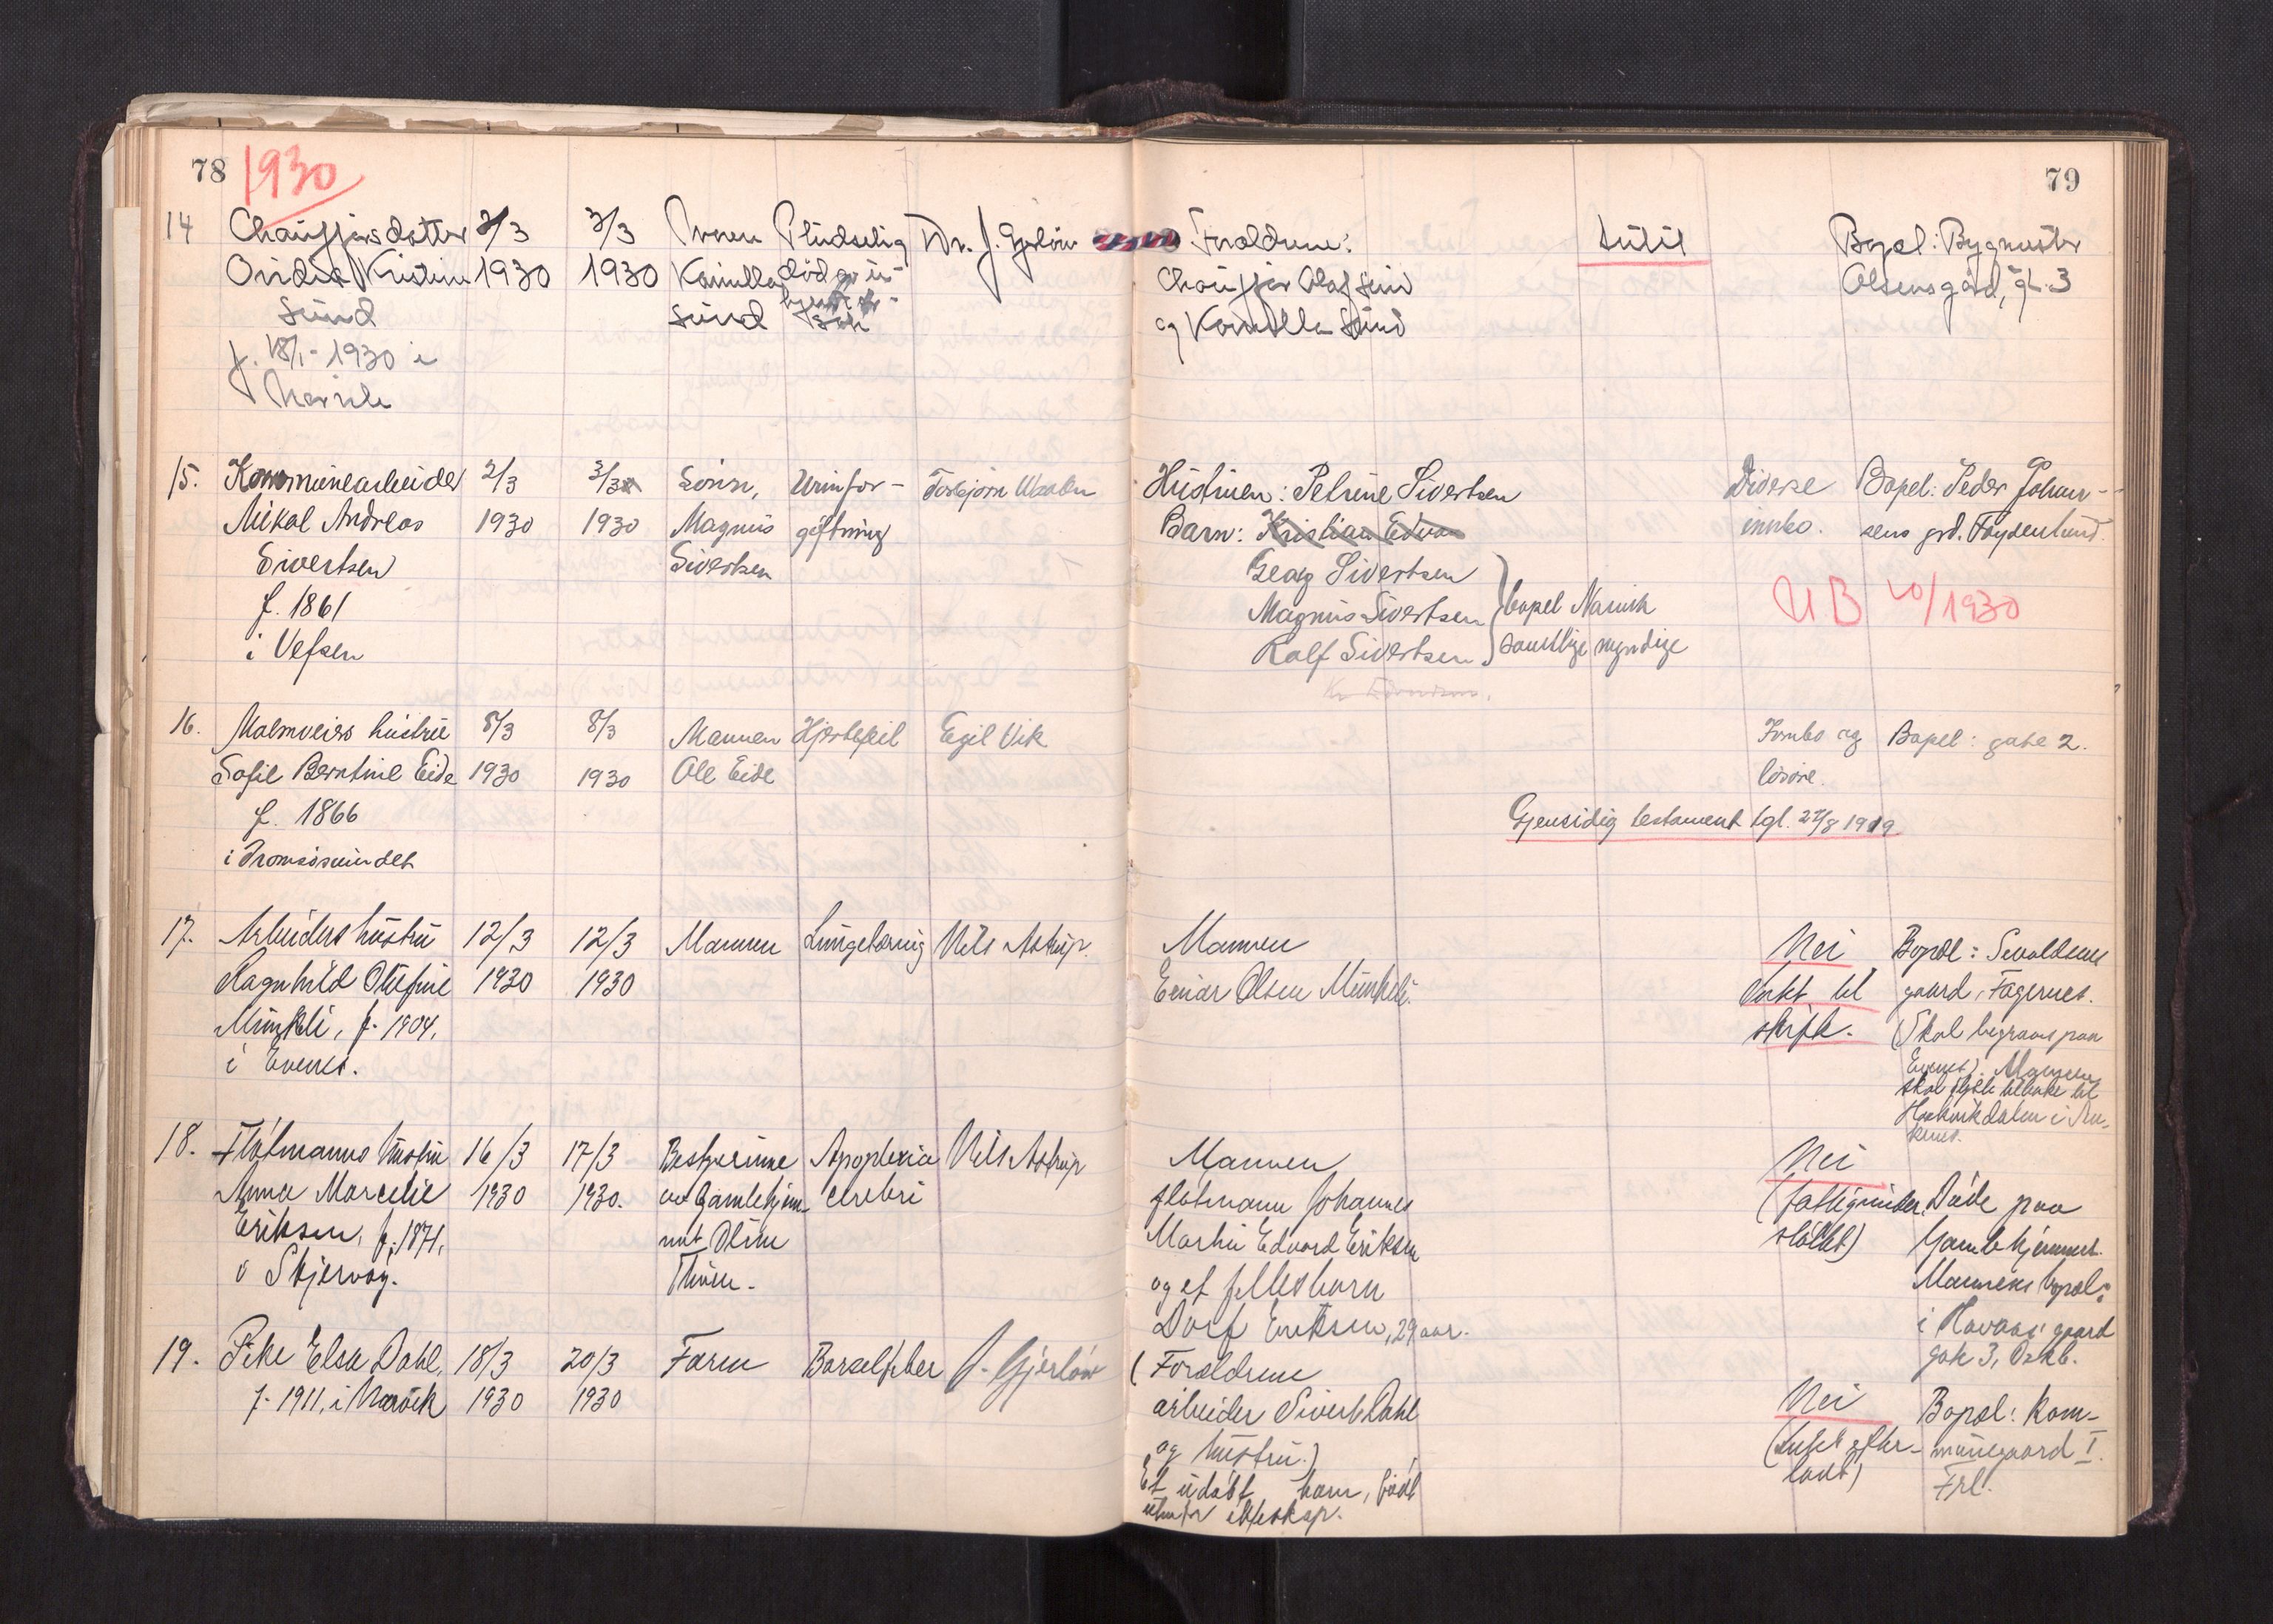 78 1930
79
14 Chaufførs datter 2/3 3/3 Moren Pludselig Dr. J. Gjerløw Forældrene: Intet Bopel: Bygmester
Ovidia Kristine 1930 1930 Kamilla død av u- Chauffør Olaf Sund Olsens gård, gt. 3
Sund Sund og Kamilla Sund
f. 18/1-1930 i
Narvik
15. Kommunearbeider 2/3 3/3 Sønn, Urinfor- Torbjørn Husdriuen: Petrine Sivertsen Diverse Bopel: Peder Johan-
Mikal Andreas 1930 1930 Magnus giftning Barn: Kristian Edva innbo. sens grd. Frydenlund.
Sivertsen Sivertsen Georg Sivertsen
f. 1861 Magnus Sivertsen bopel Narvik UB 40/1930
i Vefsen Rolf Sivertsen samtlige myndige
16. Malmveiers hustru 8/3 8/3 Mannen Hjertefeil Egil Vik Innbo og Bopel: gate 2.
Sofie Berntine Eide 1930 1930 Ole Eide løsøre.
f. 1866 Gjensidig testament tgl. 27/8 1919
i Tromsøsundet
17. Arbeiders hustru 12/3 12/3 Mannen Lungetæring Nils Astrup. Mannen Nei Bopel: Sivaldsens
Ragnhild Olufine 1930 1930 Einar Olsen Munkli. Intet til gaard, Fagernes.
Munkli, f. 1904, skifte. (Skal begraves paa
i Evenes. Evenes). Mannen
skal flytte tilbake til
Haakvikdalen i An-
kenes.
18. Flåtmanns hustru 16/3 17/3 Bestyrerinne Apoplexia Nils Astrup Mannen Nei
Anna Marcelie 1930 1930. av Gamlehjem- cerebri flåtmann Johannes (fattigunder- Døde paa
Eriksen, f. 1871, met Oline Martin Edvard Eriksen støttet) Gamlehjemmet.
i Skjervøy. Thuen. og et fellesbarn Mannens bopel:
Dorf Eriksen, 29 aar. i Havaas' gaard
gate 3, Oskb.
19. Pike Elsa Dahl, 18/3 20/3 Faren Barselfeber J. Gjerløw (Forældrene
f. 1911, i Narvik 1930 1930 arbeider Sivert Dahl Nei Bopel: Kom-
og hustru.) (Intet efter- munegaard I.
Et udøbt barn, født latt) Frl.
utenfor ekteskap.